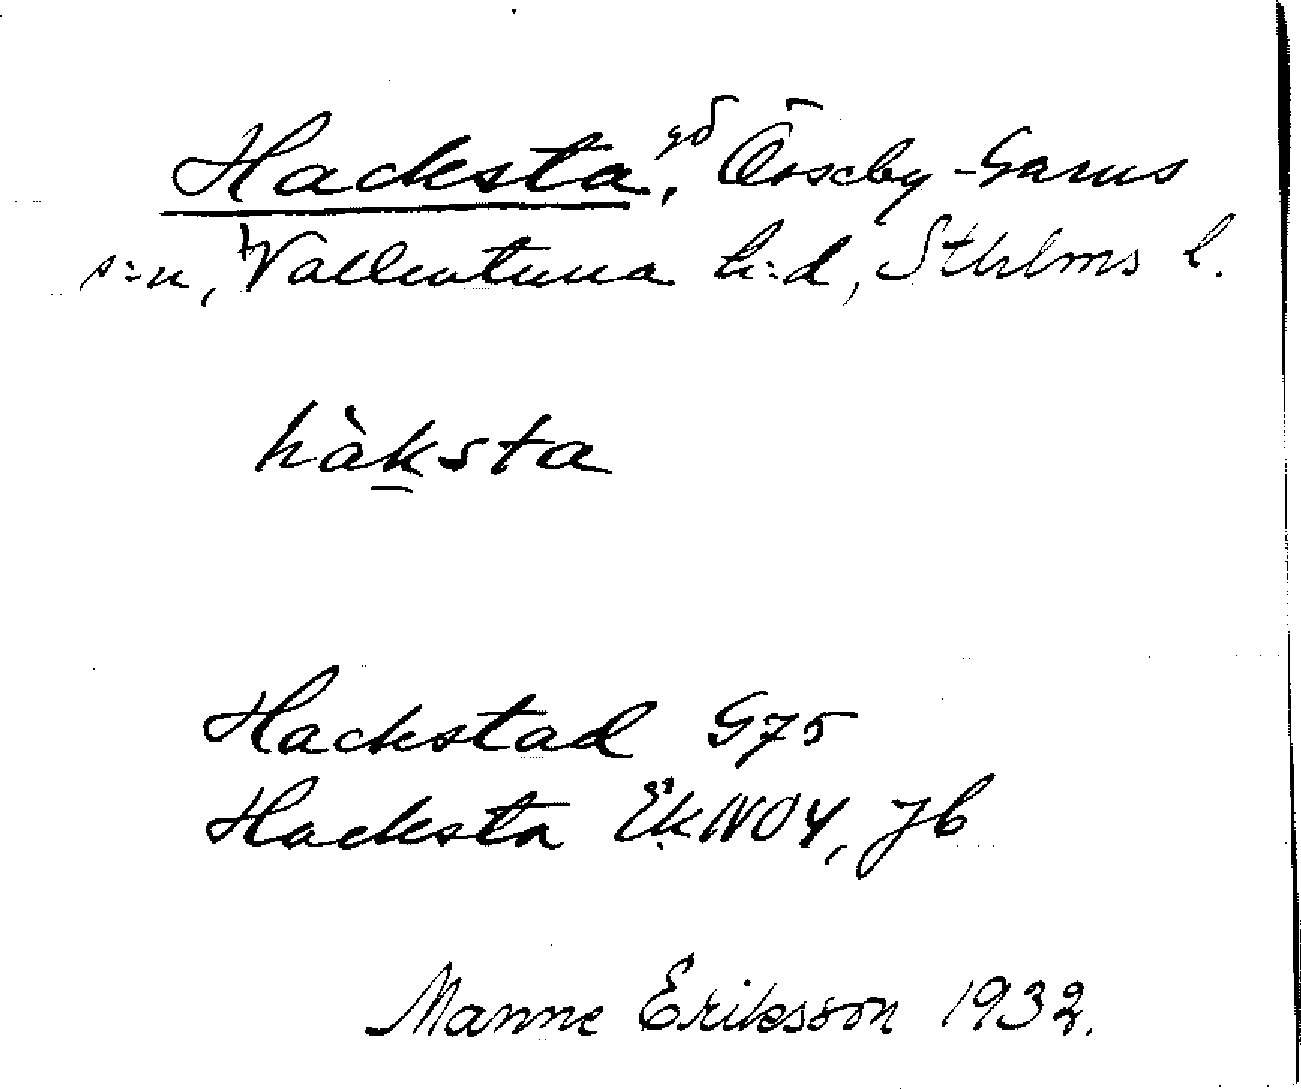 Hacksta, gd Össeby-Garns
s:n, Vallentuna h:d, Sthlms l.
hàksta
Hackstad G75
Hacksta EkNO4, Jb
Manne Eriksson 1932.